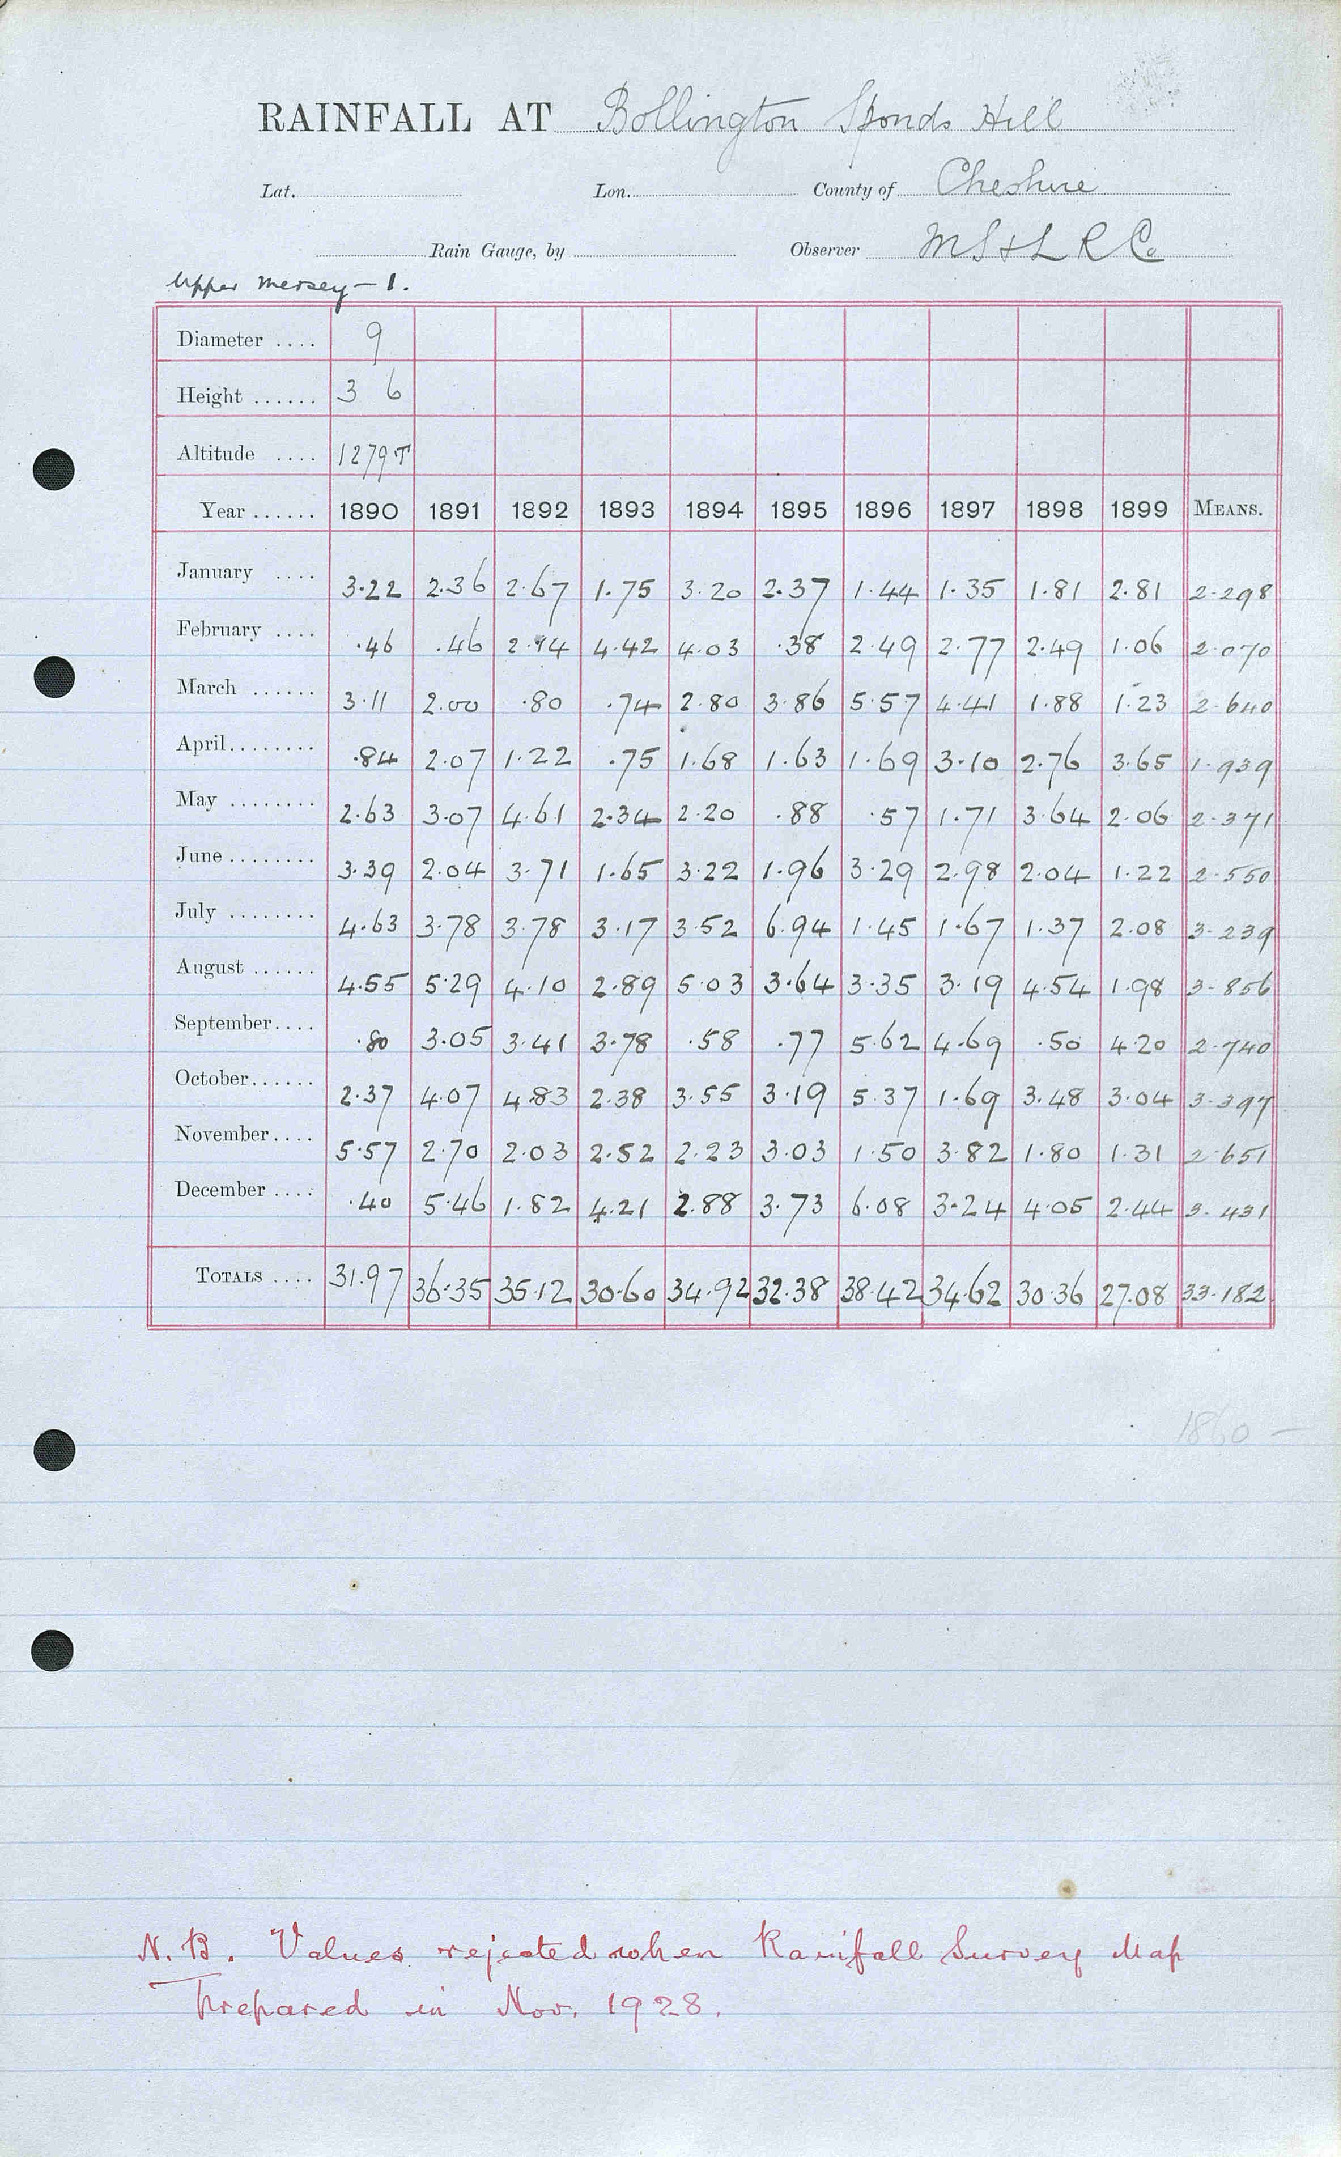 RAINFALL AT Bollington Sponds Hill
Lat. Lon. County of Cheshire
Rain Gauge, by Observer M S & L R Co
Upper Mersey - 1.
Diameter .... 9
Height ...... 3 6
Altitude .... 1279 T
Year ...... 1890 1891 1892 1893 1894 1895 1896 1897 1898 1899 MEANS.
January .... 3.22 2.36 2.67 1.75 3.20 2.37 1.44 1.35 1.81 2.81 2.298
February .... .46 .46 2.14 4.42 4.03 .38 2.49 2.77 2.49 1.06 2.070
March ...... 3.11 2.00 .80 .74 2.80 3.86 5.57 4.41 1.88 1.23 2.640
April........ .84 2.07 1.22 .75 1.68 1.63 1.69 3.10 2.76 3.65 1.939
May ........ 2.63 3.07 4.61 2.34 2.20 .88 .57 1.71 3.64 2.06 2.371
June ........ 3.39 2.04 3.71 1.65 3.22 1.96 3.29 2.98 2.04 1.22 2.550
July ........ 4.63 3.78 3.78 3.17 3.52 6.94 1.45 1.67 1.37 2.08 3.239
August ...... 4.55 5.29 4.10 2.89 5.03 3.64 3.35 3.19 4.54 1.98 3.856
September.... .80 3.05 3.41 3.78 .58 .77 5.62 4.69 .50 4.20 2.740
October...... 2.37 4.07 4.83 2.38 3.55 3.19 5.37 1.69 3.48 3.04 3.397
November.... 5.57 2.70 2.03 2.52 2.23 3.03 1.50 3.82 1.80 1.31 2.651
December .... .40 5.46 1.82 4.21 2.88 3.73 6.08 3.24 4.05 2.44 3.431
TOTALS .... 31.97 36.35 35.12 30.60 34.92 32.38 38.42 34.62 30.36 27.08 33.182
1860 -
N. B. Values rejected when Rainfall Survey Map
Prepared in Nov. 1928.